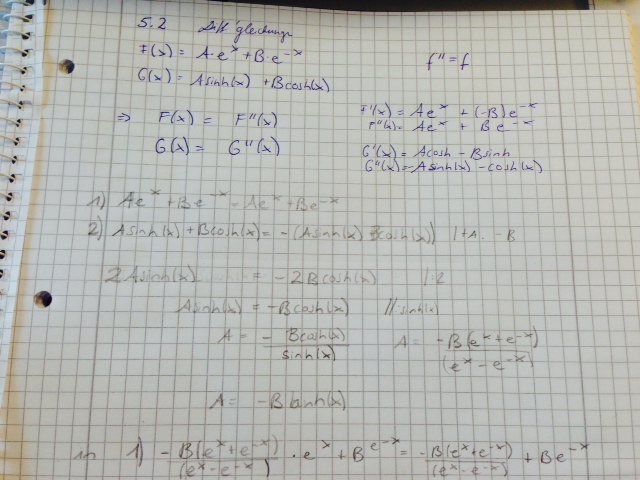 5.2 Diff'gleichunge
F(x) = A·e^x + B·e^-x
f'' = f
G(x) = Asinh(x) + Bcosh(x)
F'(x) = Ae^x + (-B)e^-x
=> F(x) = F''(x)
F''(x) = Ae^x + Be^-x
G(x) = G''(x)
G'(x) = Acosh - Bsinh
G''(x) = -Asinh(x) - cosh(x)
1) Ae^x + Be^-x = Ae^x + Be^-x
2) Asinh(x) + Bcosh(x) = -(Asinh(x) Bcosh(x)) | +A. -B
2Asinh(x) = -2Bcosh(x) | :2
Asinh(x) = -Bcosh(x) // sinh(x)
A = - Bcosh(x) / sinh(x) A = -B(e^x + e^-x) / (e^x - e^-x)
A = -Btanh(x)
in 1) - B(e^x + e^-x) / (e^x - e^-x) · e^x + B e^-x = - B(e^x + e^-x) / (e^x - e^-x) + Be^-x